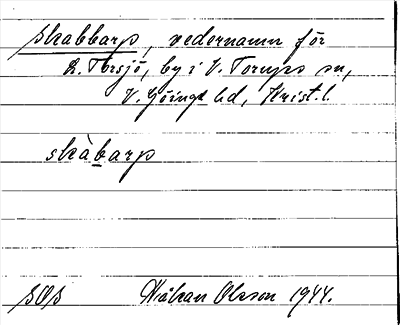 skabbarp, vedernamn för
L. Torsjö, by i V. Torups sn,
V. Göinge hd, Krist. l.
skàbarp
SOS Håkan Olsson 1944.